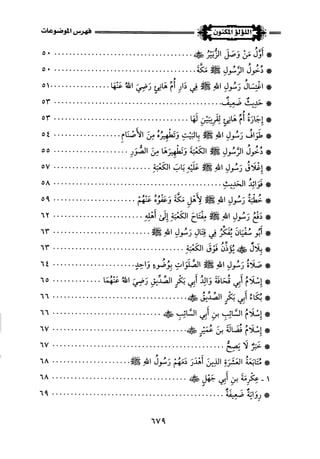 اللؤلؤ المكنون
فهرس الموضوعات
* أَوَّلُ مَنْ وَصَلَ الزُّبَيْرُ ﷺ ٥٠
* دُخُولُ الرَّسُولِ ﷺ مَكَّةَ ٥٠
* اغْتِسَالُ رَسُولِ اللهِ ﷺ فِي دَارِ أُمِّ هَانِئٍ رَضِيَ اللهُ عَنْهَا ٥١
* حَدِيثٌ ضَعِيفٌ ٥٣
* إِجَارَةُ أُمِّ هَانِئٍ لِقَرِيبَيْنِ لَهَا ٥٣
* طَوَافُ رَسُولِ اللهِ ﷺ بِالبَيْتِ وَتَطْهِيرُهُ مِنَ الأَصْنَامِ ٥٤
* دُخُولُ الرَّسُولِ ﷺ الكَعْبَةَ وَتَطْهِيرُهَا مِنَ الصُّوَرِ ٥٥
* إِغْلَاقُ رَسُولِ اللهِ ﷺ عَلَيْهِ بَابَ الكَعْبَةِ ٥٧
* فَوَائِدُ الحَدِيثِ ٥٨
* خُطْبَةُ رَسُولِ اللهِ ﷺ لِأَهْلِ مَكَّةَ وَعَفْوُهُ عَنْهُمْ ٥٩
* دَفْعُ رَسُولِ اللهِ ﷺ مِفْتَاحَ الكَعْبَةِ إِلَى أَهْلِهِ ٦٢
* أَبُو سُفْيَانَ يُفَكِّرُ فِي قِتَالِ رَسُولِ اللهِ ﷺ ٦٣
* بِلَالٌ ﷺ يُؤَذِّنُ فَوْقَ الكَعْبَةِ ٦٣
* صَلَاةُ رَسُولِ اللهِ ﷺ الصَّلَوَاتِ بِوُضُوءٍ وَاحِدٍ ٦٤
* إِسْلَامُ أَبِي قُحَافَةَ وَالِدِ أَبِي بَكْرٍ الصِّدِّيقِ رَضِيَ اللهُ عَنْهُمَا ٦٥
* بُكَاءُ أَبِي بَكْرٍ الصِّدِّيقِ ٦٦
* إِسْلَامُ السَّائِبِ بنِ أَبِي السَّائِبِ ٦٦
* إِسْلَامُ فُضَالَةَ بنِ عُمَيْرٍ ٦٧
* خَبَرٌ لَا يَصِحُّ ٦٧
* مُتَابَعَةُ العَشَرَةِ الذِينَ أَهْدَرَ دَمَهُمْ رَسُولُ اللهِ ﷺ ٦٨
١ - عِكْرِمَةُ بنُ أَبِي جَهْلٍ ٦٨
* رِوَايَةٌ ضَعِيفَةٌ ٦٩
٦٧٩